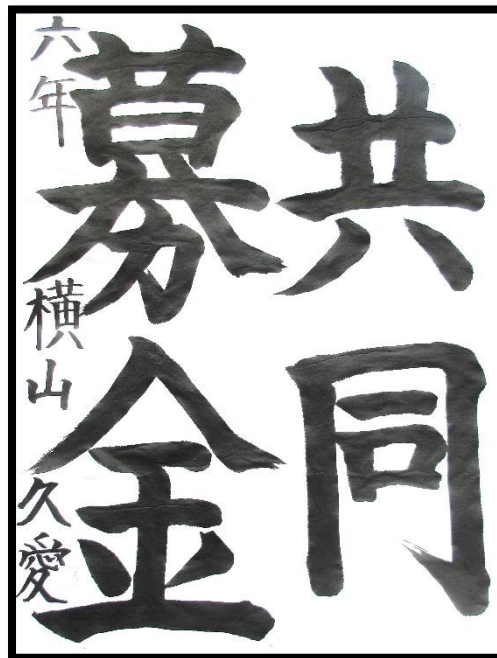 共同
募金
六年 横山 久愛